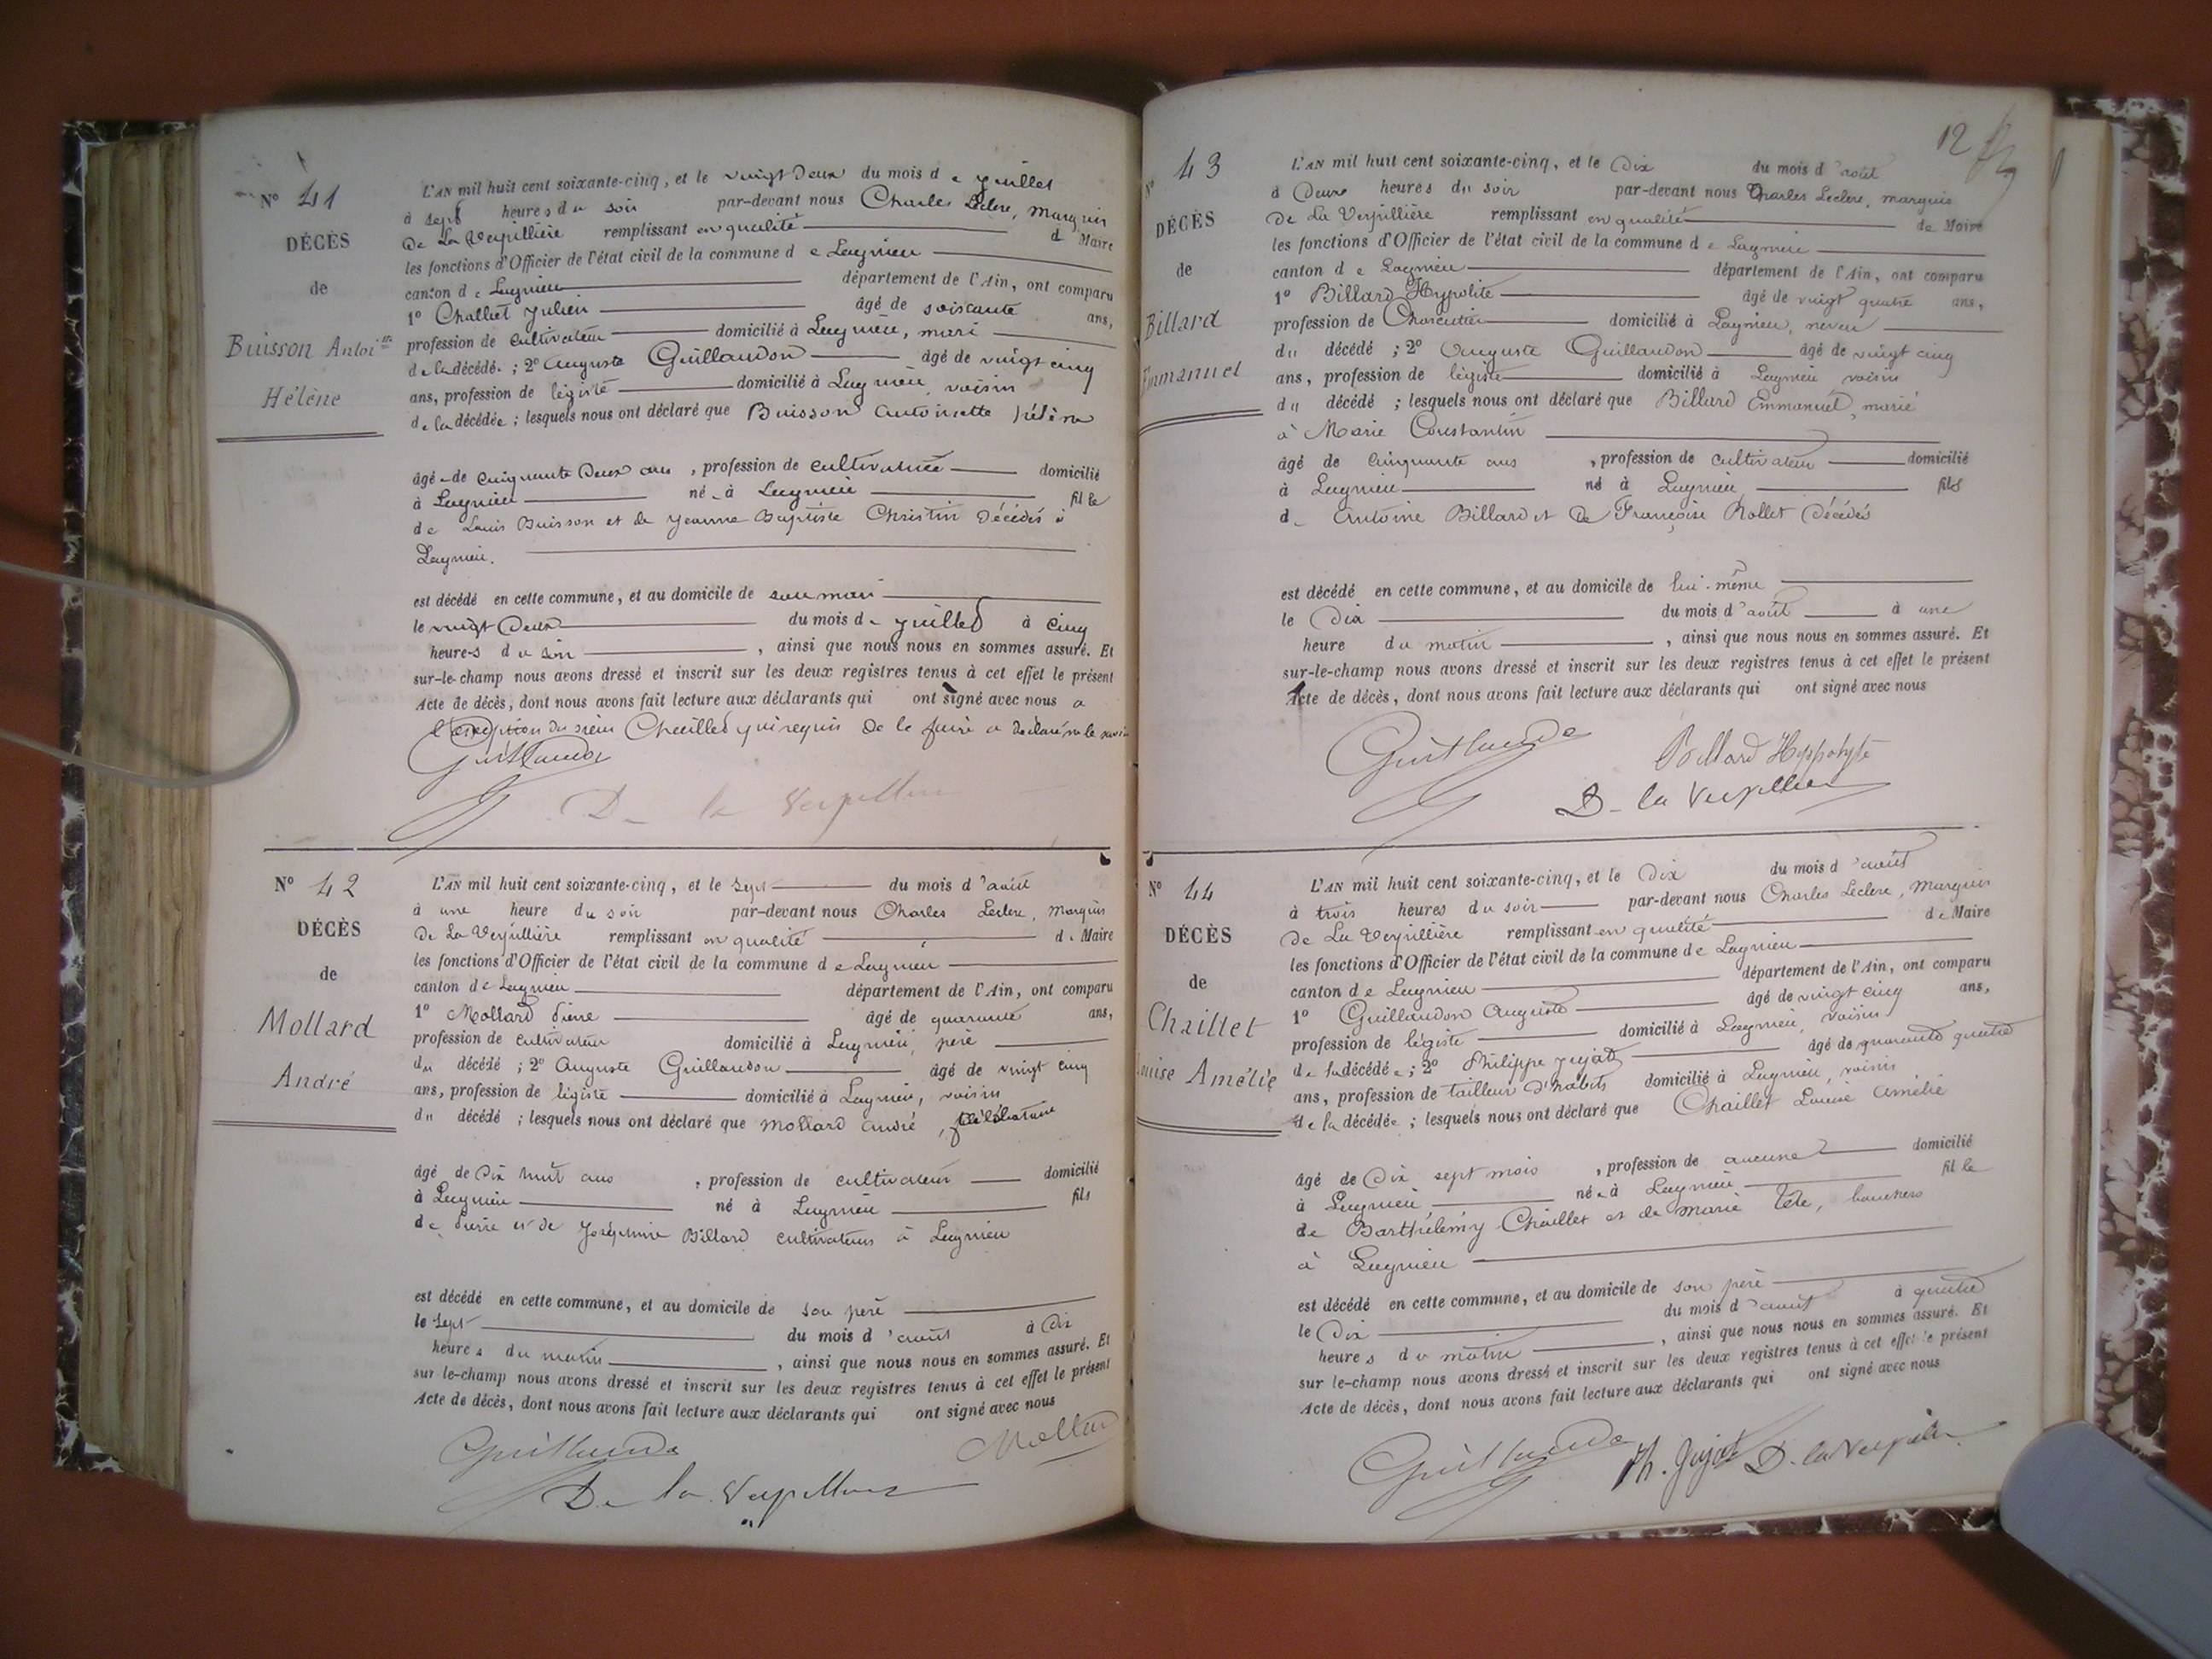 N° 41
DÉCÈS
de
Buisson Antoi^tte
Hélène
L'AN mil huit cent soixante-cinq, et le vingt deux du mois de juillet
à sept heures du soir par-devant nous Charles Leclerc, marquis
De La Verpillière remplissant en qualité de Maire
les fonctions d'Officier de l'état civil de la commune de Lagnieu
canton de Lagnieu département de l'Ain, ont comparu
1° Challiet Julien âgé de soixante ans,
profession de cultivateur domicilié à Lagnieu, mari
de la décédée ; 2° Auguste Guillaudon âgé de vingt cinq
ans, profession de légiste domicilié à Lagnieu, voisin
de la décédée ; lesquels nous ont déclaré que Buisson Antoinette Hélène
âgée de cinquante deux ans, profession de cultivatrice domicilié
à Lagnieu née à Lagnieu fille
de Louis Buisson et de Jeanne Baptiste Christin décédés à
Lagnieu.
est décédé en cette commune, et au domicile de son mari
le vingt deux du mois de juillet à cinq
heures du soir, ainsi que nous nous en sommes assuré. Et
sur-le-champ nous avons dressé et inscrit sur les deux registres tenus à cet effet le présent
Acte de décès, dont nous avons fait lecture aux déclarants qui ont signé avec nous à
l'exception du sieur Chaillet qui requis de le faire a déclaré ne le savoir
Guillaudon
De la Verpillière
N° 42
DÉCÈS
de
Mollard
André
L'AN mil huit cent soixante-cinq, et le sept du mois d'août
à une heure du soir par-devant nous Charles Leclerc, marquis
De La Verpillière remplissant en qualité de Maire
les fonctions d'Officier de l'état civil de la commune de Lagnieu
canton de Lagnieu département de l'Ain, ont comparu
1° Mollard Pierre âgé de quarante ans,
profession de cultivateur domicilié à Lagnieu, père
du décédé ; 2° Auguste Guillaudon âgé de vingt cinq
ans, profession de légiste domicilié à Lagnieu, voisin
du décédé ; lesquels nous ont déclaré que Mollard André, célibataire
âgé de dix huit ans, profession de cultivateur domicilié
à Lagnieu né à Lagnieu fils
de Pierre et de Joséphine Billard cultivateurs à Lagnieu
est décédé en cette commune, et au domicile de son père
le sept du mois d'août à dix
heures du matin, ainsi que nous nous en sommes assuré. Et
sur le-champ nous avons dressé et inscrit sur les deux registres tenus à cet effet le présent
Acte de décès, dont nous avons fait lecture aux déclarants qui ont signé avec nous
Guillaudon Mollard
De la Verpillière
12
N° 43
DÉCÈS
de
Billard
Emmanuel
L'AN mil huit cent soixante-cinq, et le dix du mois d'août
à deux heures du soir par-devant nous Charles Leclerc, marquis
de La Verpillière remplissant en qualité de Maire
les fonctions d'Officier de l'état civil de la commune de Lagnieu
canton de Lagnieu département de l'Ain, ont comparu
1° Billard Hypolite âgé de vingt quatre ans,
profession de Charcutier domicilié à Lagnieu, neveu
du décédé ; 2° Auguste Guillaudon âgé de vingt cinq
ans, profession de légiste domicilié à Lagnieu voisin
du décédé ; lesquels nous ont déclaré que Billard Emmanuel, marié
à Marie Constantin
âgé de cinquante ans, profession de cultivateur domicilié
à Lagnieu né à Lagnieu fils
d. Antoine Billard et de Françoise Rollet décédés
est décédé en cette commune, et au domicile de lui-même
le dix du mois d'août à une
heure du matin, ainsi que nous nous en sommes assuré. Et
sur-le-champ nous avons dressé et inscrit sur les deux registres tenus à cet effet le présent
Acte de décès, dont nous avons fait lecture aux déclarants qui ont signé avec nous
Guillaudon Billard Hyppolyte
D. la Verpillière
N° 44
DÉCÈS
de
Chaillet
Louise Amélie
L'AN mil huit cent soixante-cinq, et le dix du mois d'août
à trois heures du soir par-devant nous Charles Leclerc, marquis
de La Verpillière remplissant en qualité de Maire
les fonctions d'Officier de l'état civil de la commune de Lagnieu
canton de Lagnieu département de l'Ain, ont comparu
1° Guillaudon Auguste âgé de vingt cinq ans,
profession de légiste domicilié à Lagnieu, voisin
de la décédée ; 2° Philippe Jujat âgé de quarante quatre
ans, profession de tailleur d'habits domicilié à Lagnieu, voisin
de la décédée ; lesquels nous ont déclaré que Chaillet Louise Amélie
âgé de dix sept mois, profession de aucune domicilié
à Lagnieu, née à Lagnieu fille
de Barthélemy Chaillet et de Marie Tête, bouchers
à Lagnieu
est décédé en cette commune, et au domicile de son père
le dix du mois d'août à quatre
heures du matin, ainsi que nous nous en sommes assuré. Et
sur le-champ nous avons dressé et inscrit sur les deux registres tenus à cet effet le présent
Acte de décès, dont nous avons fait lecture aux déclarants qui ont signé avec nous
Guillaudon Ph. Jujat D. la Verpillière